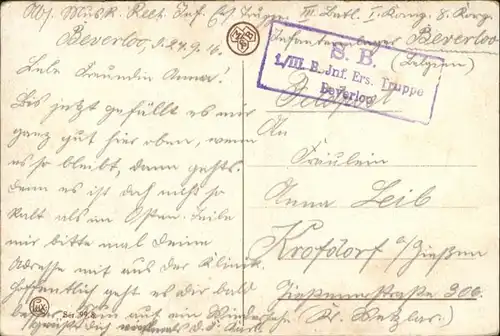 Abs. Musk. Rect. Inf. Ers. Truppe III. Batl. I. Komp. 8. Korp.
Infanterielager Beverloo
(Belgien)
Beverloo, d. 27.9.16.
S. B.
1./III. B. Jnf. Ers. Truppe
Beverloo
Feldpost
Liebe Freundin Anna!
Bis jetzt gefällt es mir
ganz gut hier oben, wenn
es so bleibt, dann gehts.
Denn es ist doch nicht so
kalt als im Osten. Teile
mir bitte mal Deine
Adresse mit aus der Klinik.
Hoffentlich geht es dir bald
besser. auf ein Wiedersehn
grüßt dich
An
Fräulein
Anna Leib
Krofdorf a/Gießen
Gießenerstraße 300.
(Kr. Wetzlar.)
Ser. 99